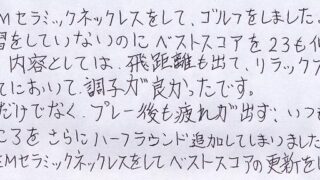 Mセラミックネックレスをして、ゴルフをしました。
習をしていないのにベストスコアを23も
内容としては、飛距離も出て、リラックス
てにおいて、調子が良かったです。
だけでなく、プレー後も疲れが出ず、いつ
ころをさらにハーフラウンド追加してしまいました
EMセラミックネックレスをしてベストスコアの更新を